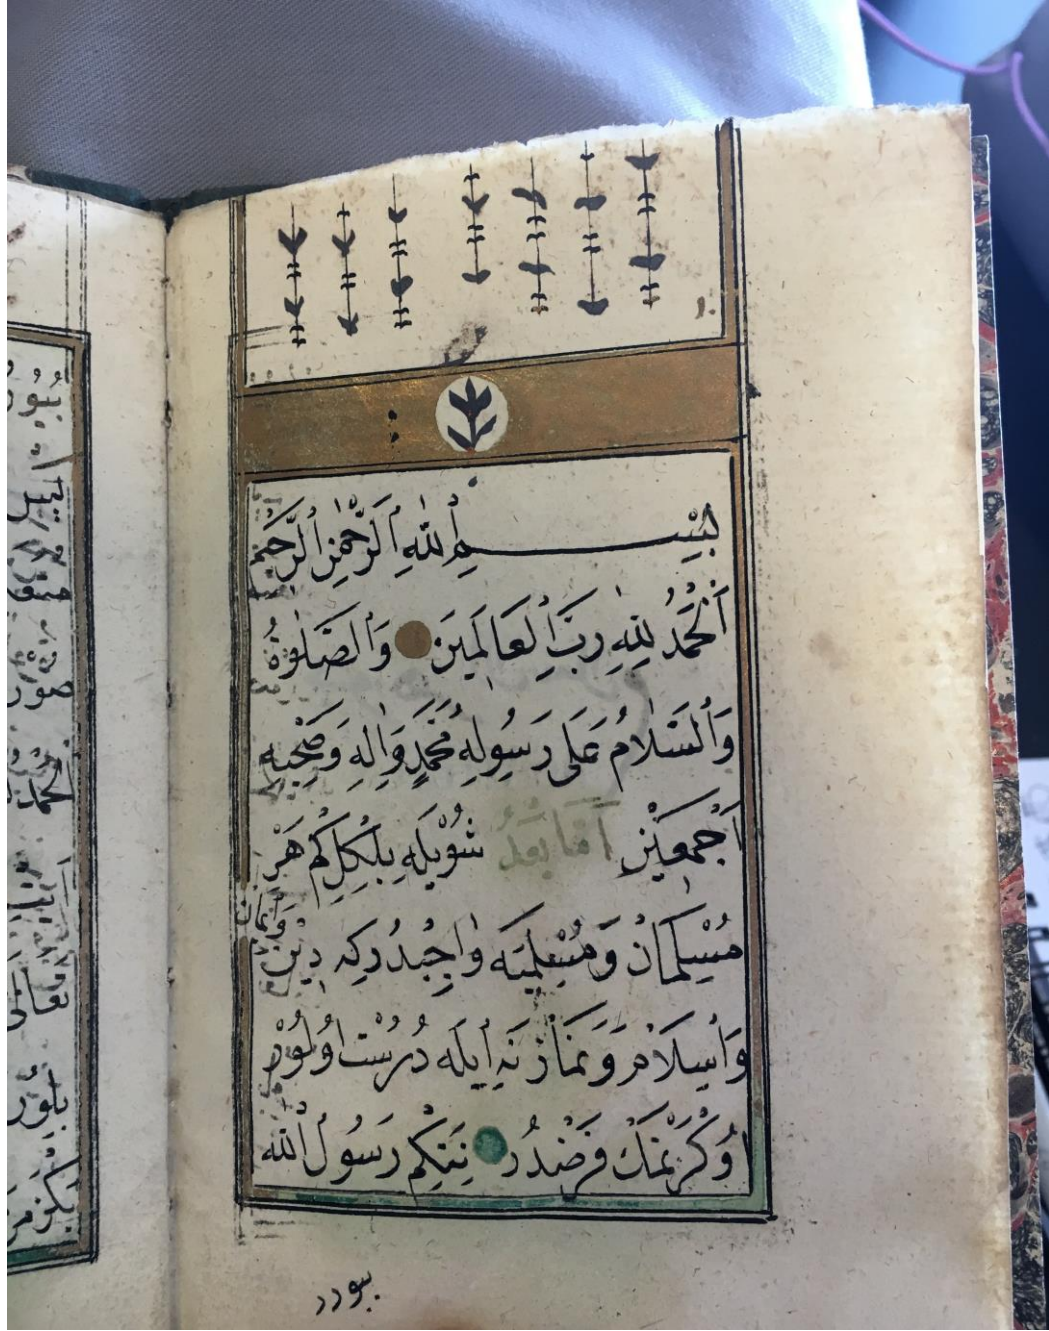 بِسْمِ اللّٰهِ الرَّحْمٰنِ الرَّحِيْمِ
اَلْحَمْدُ لِلّٰهِ رَبِّ الْعَالَمِيَن وَالصَّلٰوةُ
وَالسَّلَامُ عَلٰى رَسُولِهِ مُحَمَّدٍ وَاٰلِهِ وَصَحْبِهِ
اَجْمَعِيْنَ اَمَّا بَعْدُ شُوْيْلَهِ بِلْكِلِ كُمْ هَرْ
مُسِلْمَانْ وَمُسْلِمَيَه وَاجِبْدُرْكِه دِيْن وَاِيمَان
وَاِسْلَامْ وَنَمَازْ نَه اِيلَه دُرُسْت اُولُوْر
اُوكْرَنْمَكْ فَرْضْدُرْ نِتَكِمْ رَسُولُ اللّٰه
بيورر
بيور
صور
الحمد
تعالى
بلور